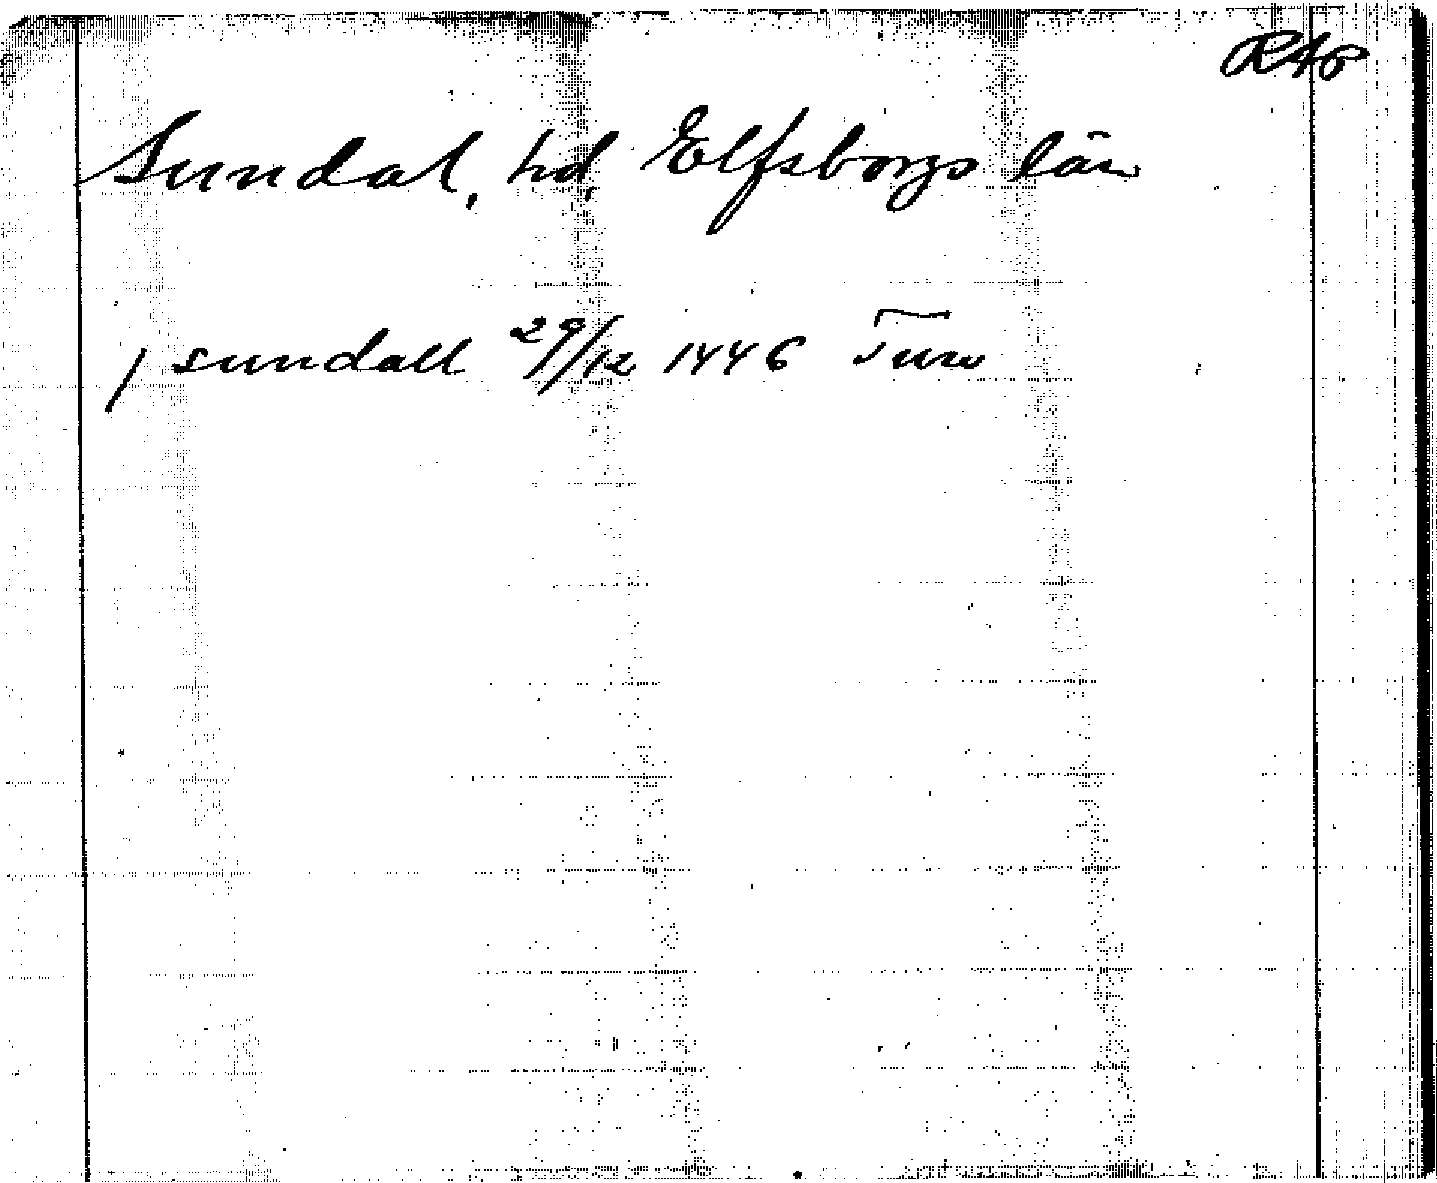 RAp
Sundal, hd, Elfsborgs län
j sundall 29/12 1446